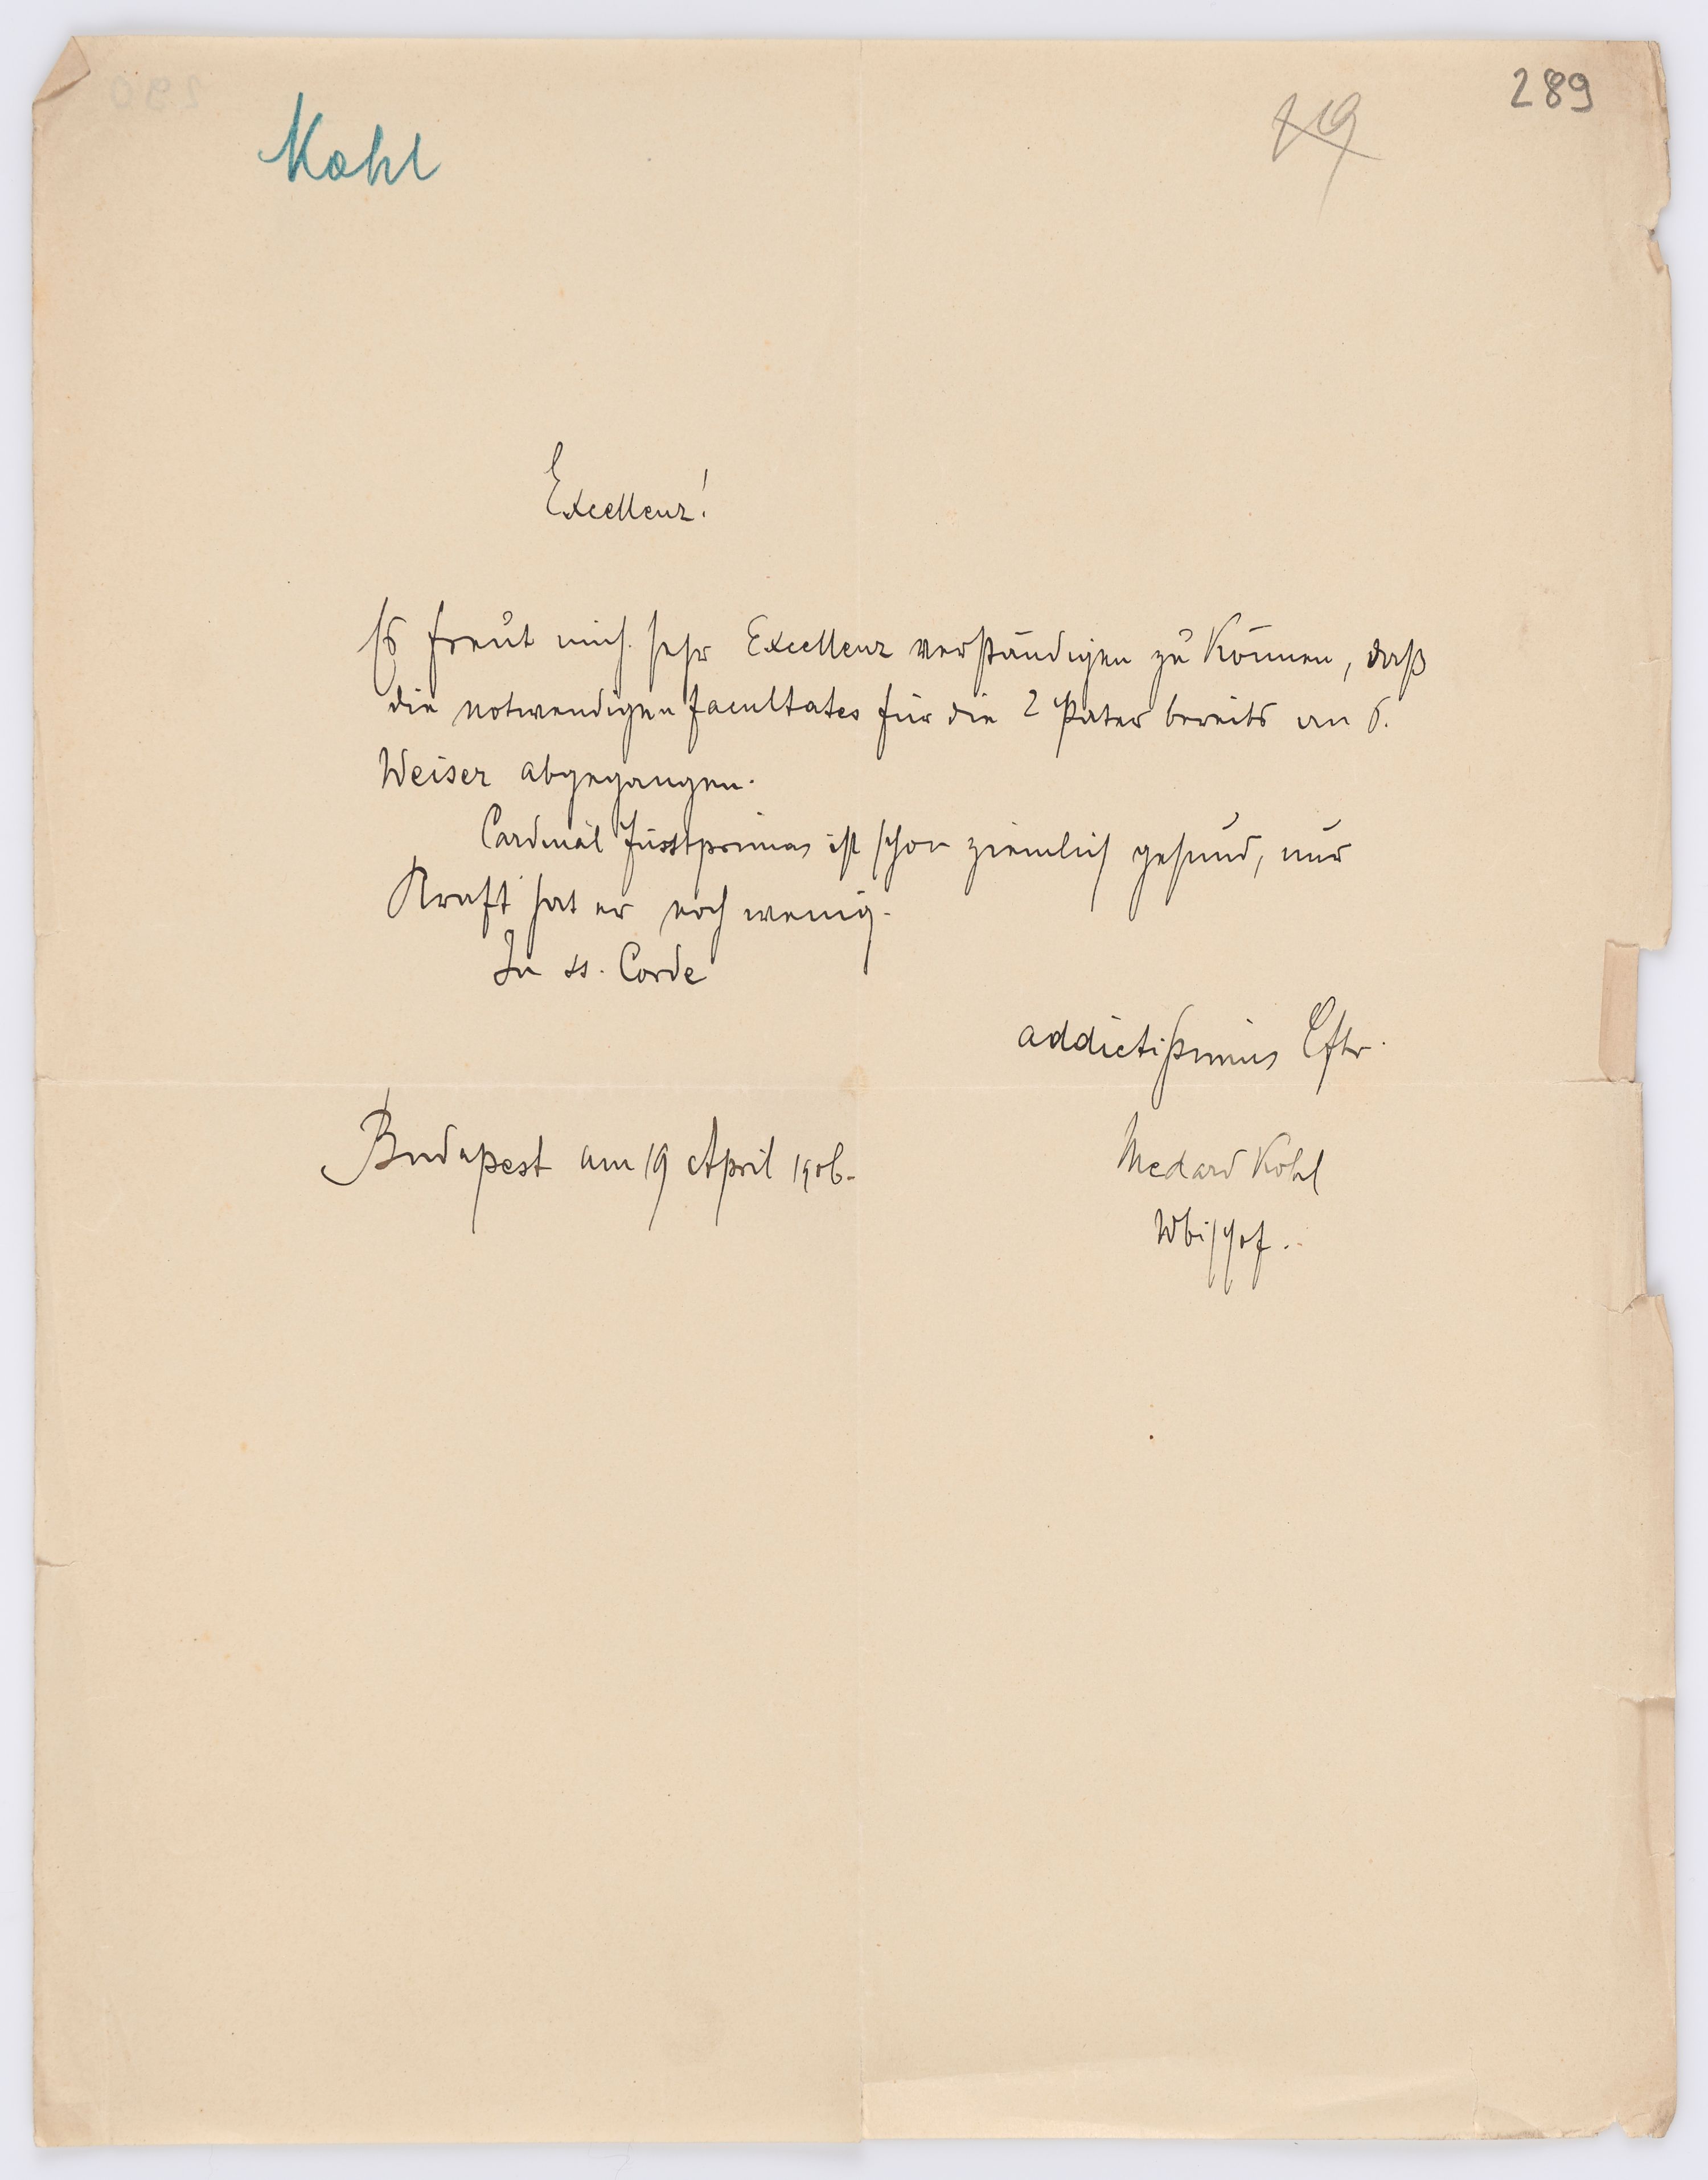 289
Kohl
Excellenz!
Es freut mich sehr Excellenz verständigen zu können, daß
die notwendigen facultates für die 2 Pater bereits an
Weiser abgegangen.
Cardinal Fürstprimas ist schon ziemlich gesund, nur
Kraft hat er noch wenig.
In ss. Corde
addictissimus
Budapest am 19 April 1906.
Medard Kohl
Wbischof.